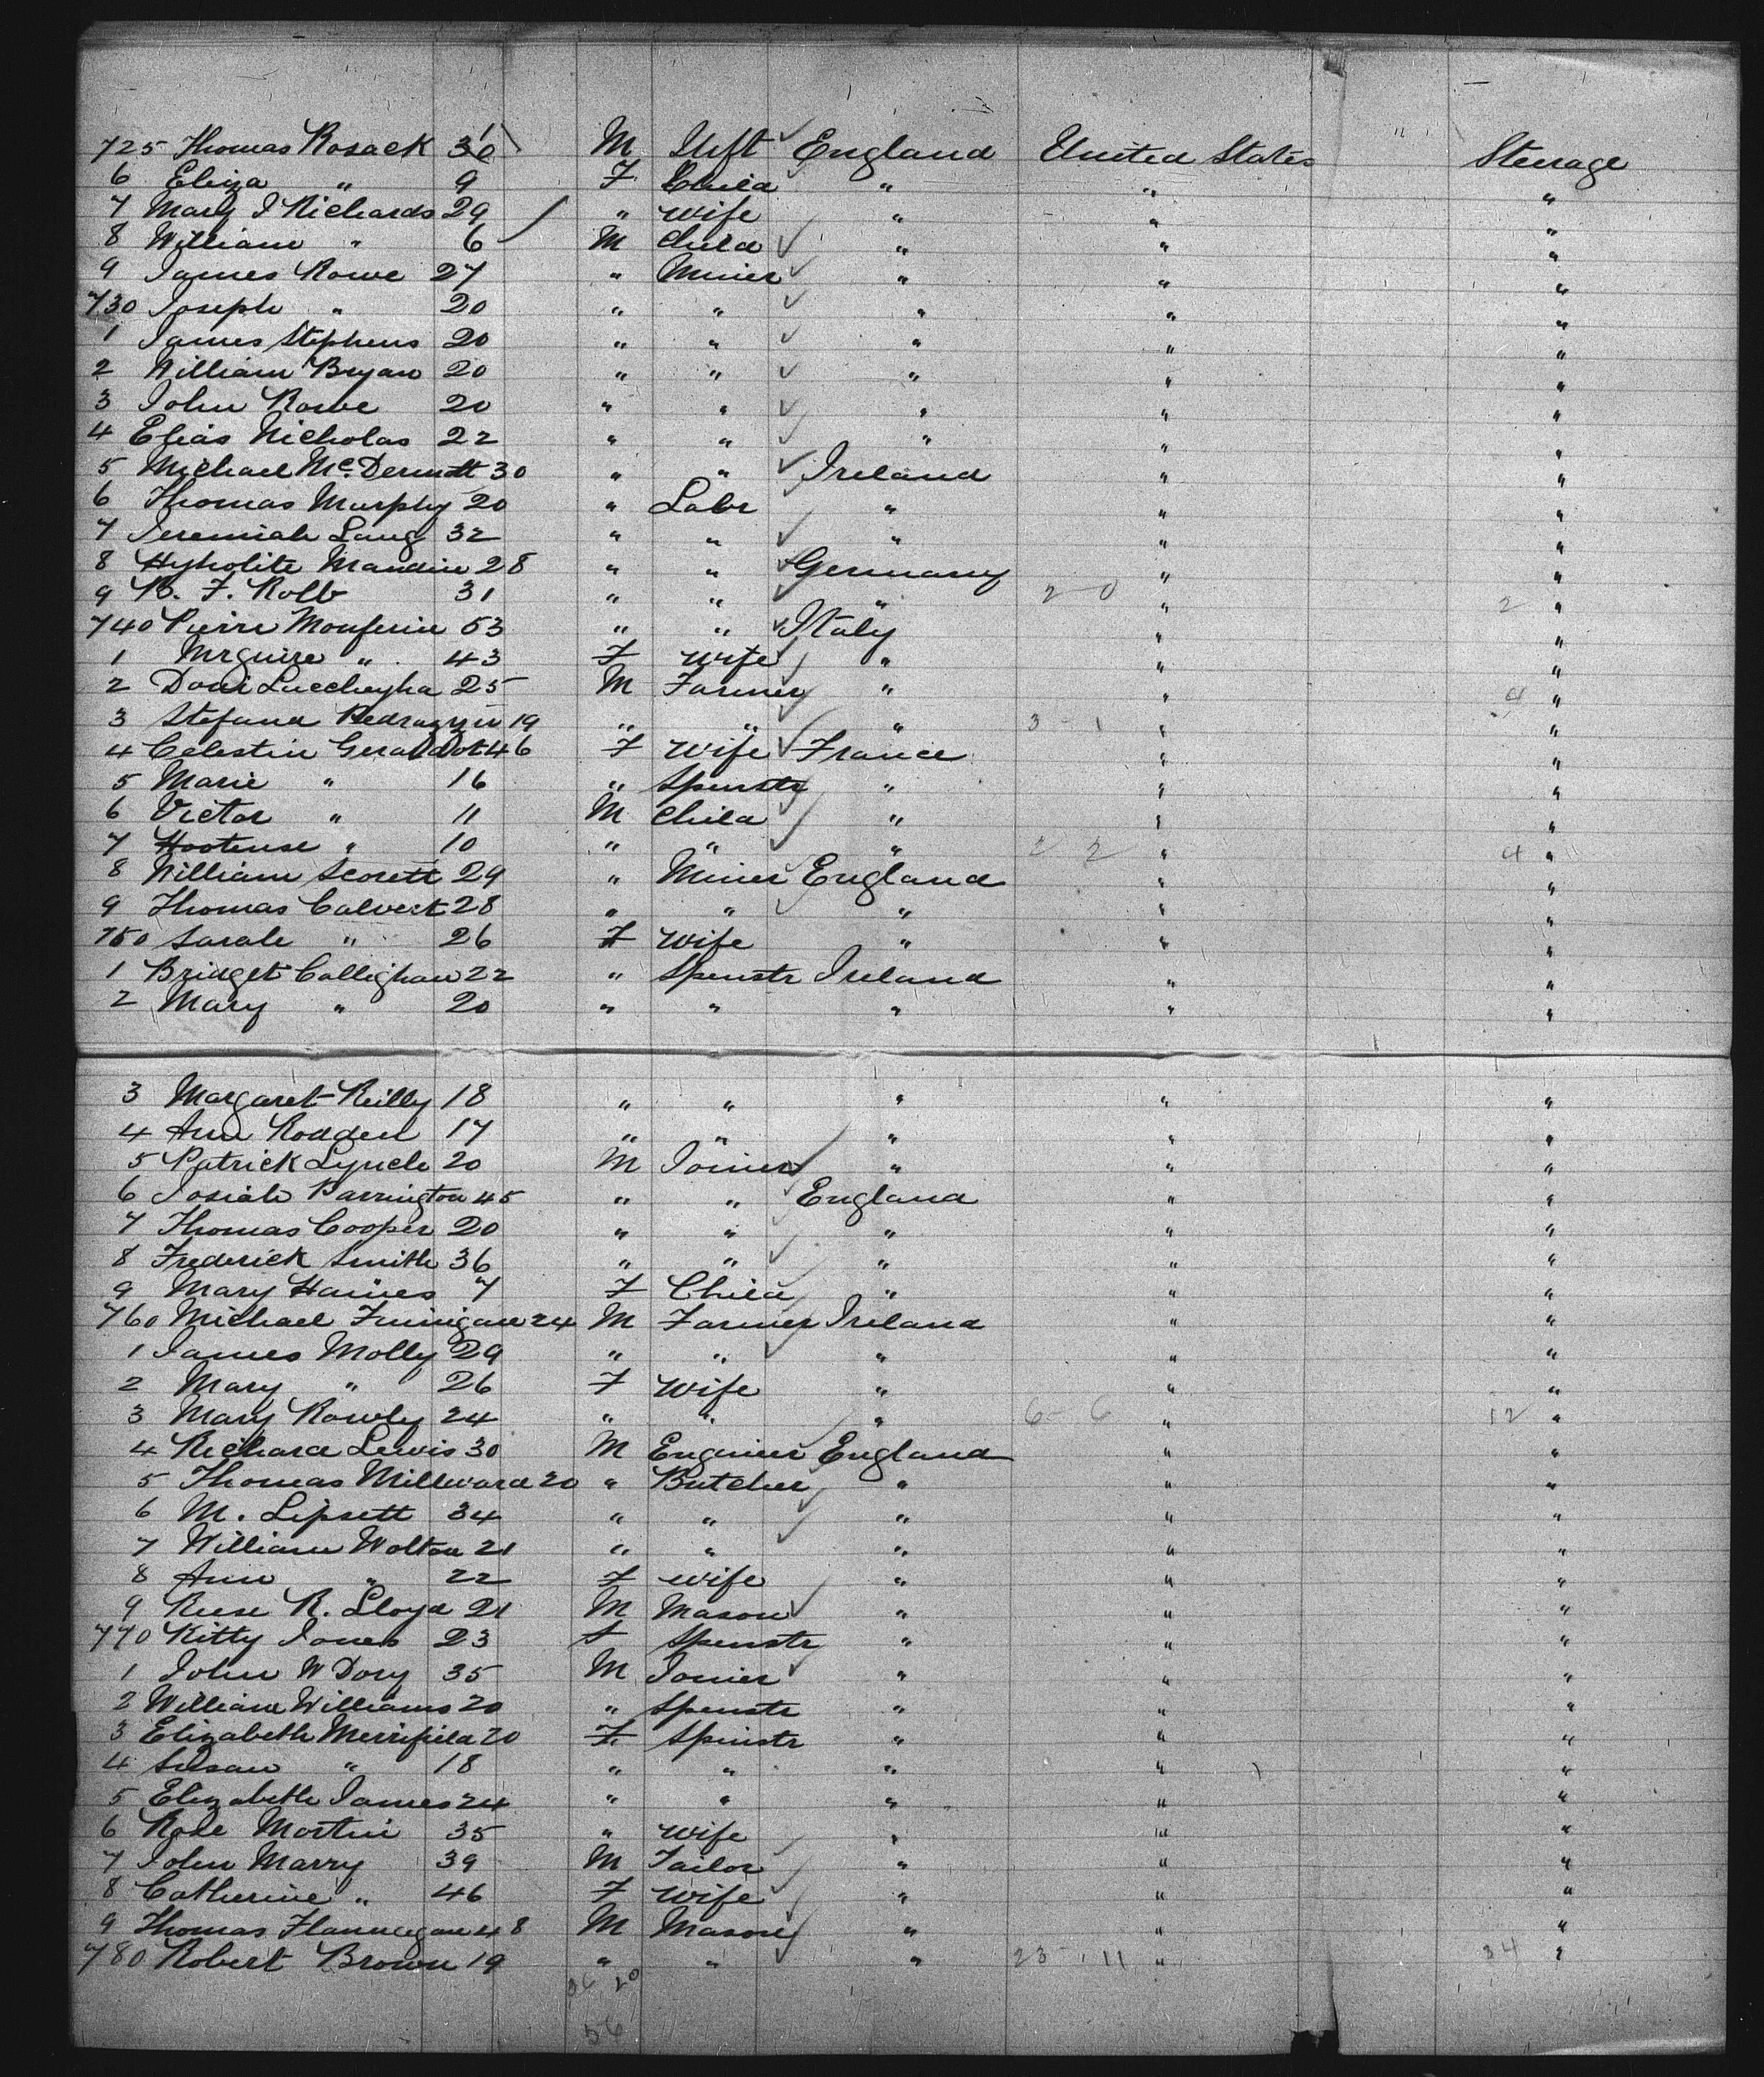 725 Thomas Rosack 36 M Uhft England United States Steerage
6 Eliza " 9 F Child " " "
7 Mary J Richards 29 " Wife " " "
8 William " 6 M Child " " "
9 James Rowe 27 " Miner " " "
730 Joseph " 20 " " " " "
1 James Stephens 20 " " " " "
2 William Bryan 20 " " " " "
3 John Rowe 20 " " " " "
4 Elias Nicholas 22 " " " " "
5 Michael McDermott 30 " " Ireland " "
6 Thomas Murphy 20 " Labr " " "
7 Jeremiah Lang 32 " " " " "
8 Hypolite Mandin 28 " " Germany " "
9 B. F. Kolb 31 " " " 2 0 " 2 "
740 Pierre Monferine 53 " " Italy " "
1 " 43 F Wife " " "
2 Doni 25 M Farmer " " "
3 Stefana Pedrazzin 19 " " " 3 - 1 " 4 "
4 Celestin Geraldot 46 F Wife France " "
5 Marie " 16 " Spinstr " " "
6 Victor " 11 M Child " " "
7 Hootense " 10 " " " 2 2 " 4 "
8 William Scorett 29 " Miner England " "
9 Thomas Calvert 28 " " " " "
750 Sarah " 26 F Wife " " "
1 Bridget Callighan 22 " Spenstr Ireland " "
2 Mary " 20 " " " " "
3 Margaret Reilly 18 " " " " "
4 Ann Rodden 17 " " " " "
5 Patrick Lynch 20 M Joiner " " "
6 Josiah Parrington 45 " " England " "
7 Thomas Cooper 20 " " " " "
8 Frederick Smith 36 " " " " "
9 Mary Haines 7 F Child " " "
760 Michael Finnigan 24 M Farmer Ireland " "
1 James Molly 29 " " " " "
2 Mary " 26 F Wife " " "
3 Mary Rowley 24 " " " 6 - 6 " 12 "
4 Richard Lewis 30 M Enginier England " "
5 Thomas Millward 20 " Butcher " " "
6 M. Lipsett 34 " " " " "
7 William Wolton 21 " " " " "
8 Ann " 22 F Wife " " "
9 Reese R. Lloyd 21 M Mason " " "
770 Kitty Jones 23 F Spenstr " " "
1 John W Dory 35 M Joiner " " "
2 William Williams 20 " Spenstr " " "
3 Elizabeth Merrifield 20 F Spinstr " " "
4 Susan " 18 " " " " "
5 Elizabeth James 24 " " " " "
6 Rose Martin 35 " Wife " " "
7 John Marry 39 M Tailor " " "
8 Catherine " 46 F Wife " " "
9 Thomas Flannegan 48 M Mason " " "
780 Robert Brown 19 " " " 23 - 11 " 34 "
36 20
56